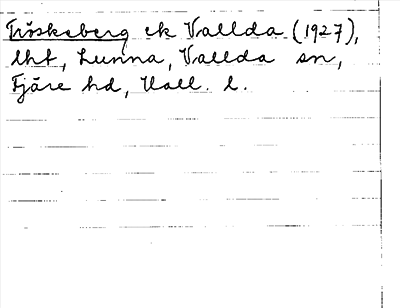 Tröskeberg ek Vallda (1927),
lht, Lunna, Vallda sn,
Fjäre hd, Hall. l.